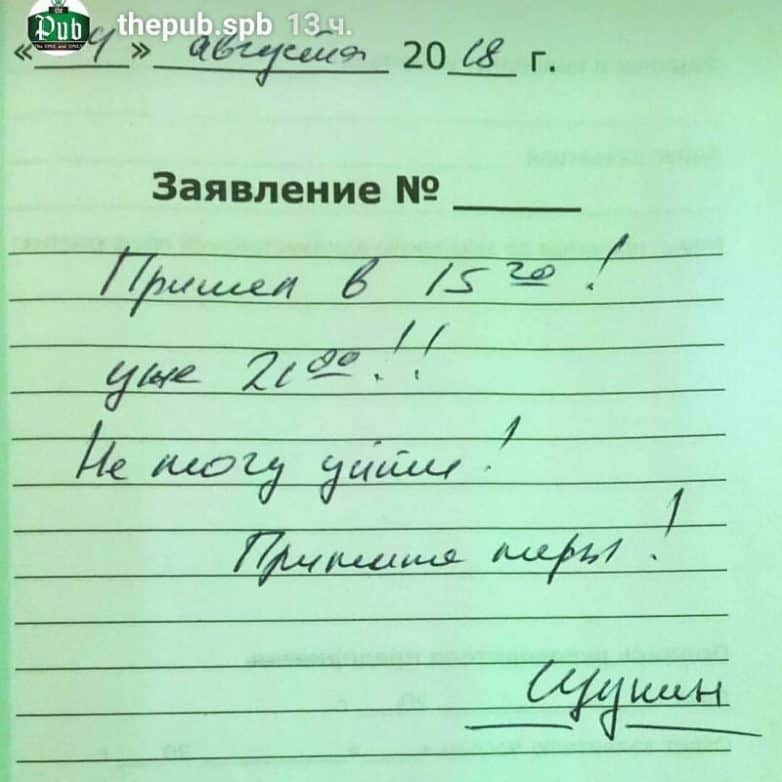 Pub
thepub.spb 13 ч.
«4» августа 2018 г.
Заявление №
Пришел в 15 20!
уже 21 00!!
Не могу уйти!
Примите меры!
Щукин